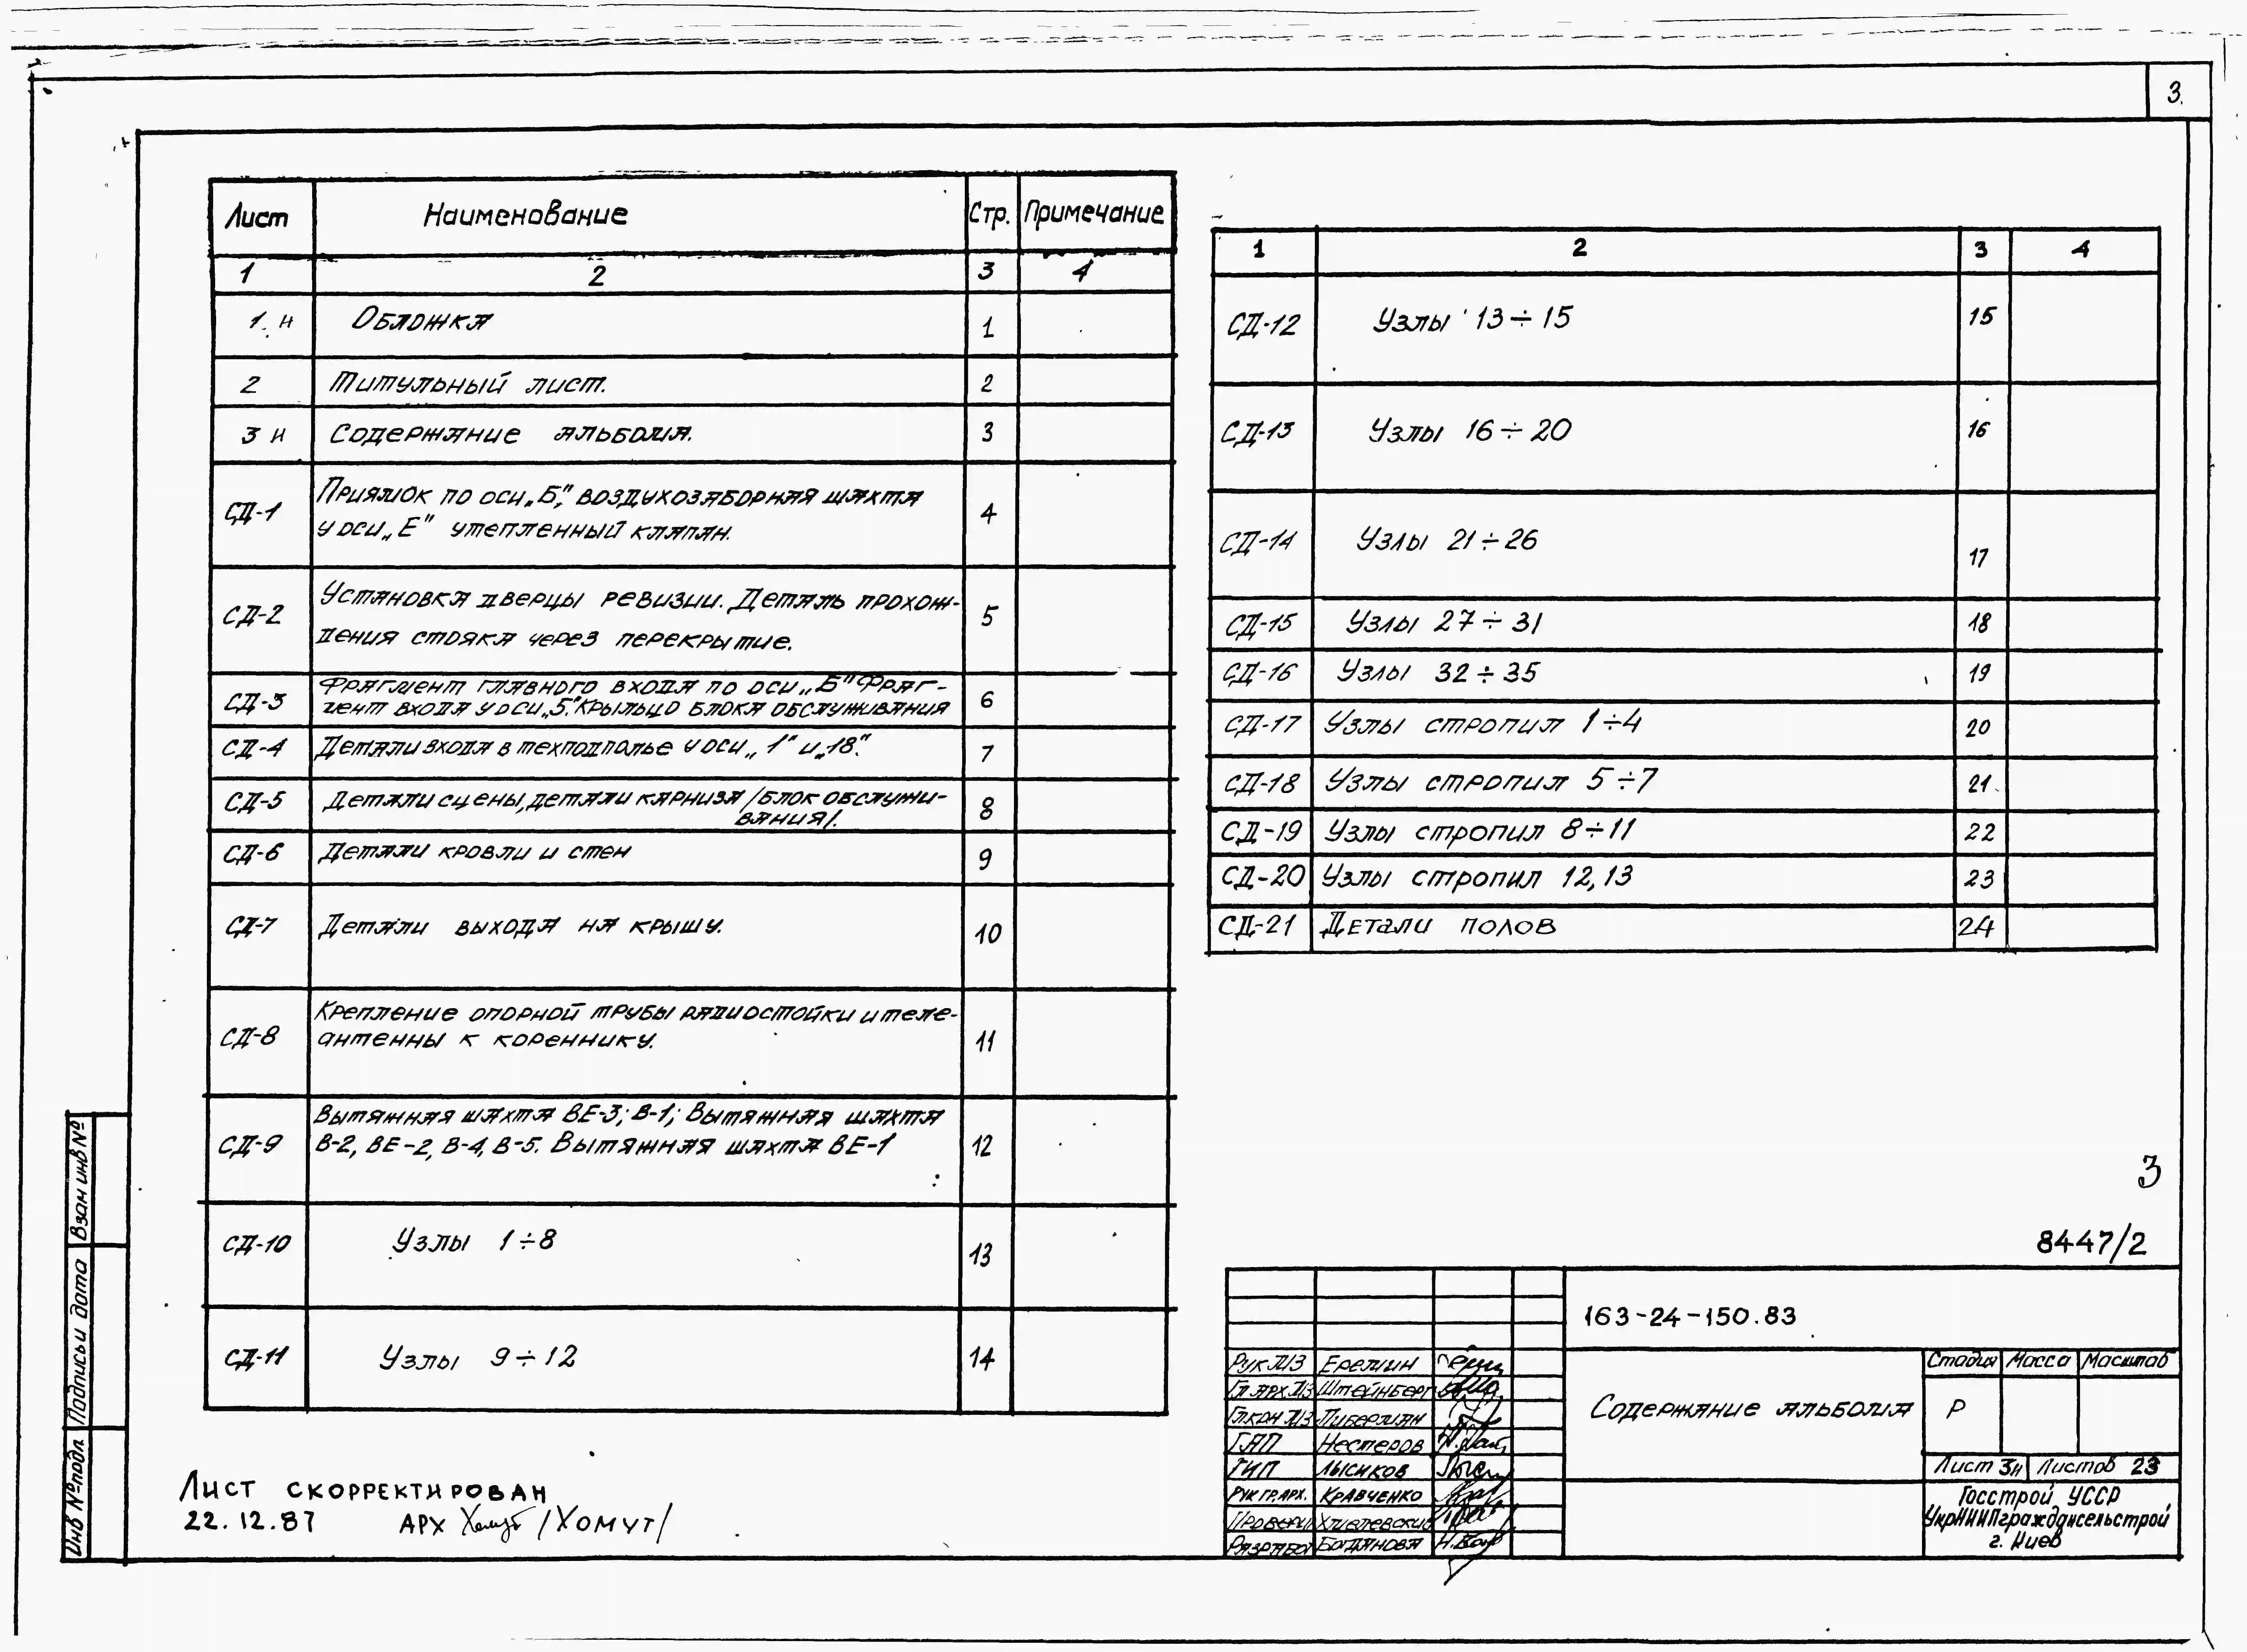 3.
Лист Наименование Стр. Примечание
1 2 3 4
1 н Обложка 1
2 Титульный лист. 2
3 н Содержание альбома. 3
СД-1 Приямок по оси „Б", воздухозаборная шахта
у оси „Е" утепленный клапан. 4
СД-2 Установка дверцы ревизии. Деталь прохож-
дения стояка через перекрытие. 5
СД-3 Фрагмент главного входа по оси „Б" Фраг-
мент входа у оси „5". Крыльцо блока обслуживания 6
СД-4 Детали входа в техподполье у оси „1" и „18". 7
СД-5 Детали сцены, детали карниза /блок обслужи-
вания/. 8
СД-6 Детали кровли и стен 9
СД-7 Детали выхода на крышу. 10
СД-8 Крепление опорной трубы радиостойки и теле-
антенны к кореннику. 11
СД-9 Вытяжная шахта ВЕ-3; В-1; Вытяжная шахта
В-2, ВЕ-2, В-4, В-5. Вытяжная шахта ВЕ-1 12
СД-10 Узлы 1÷8 13
СД-11 Узлы 9÷12 14
1 2 3 4
СД-12 Узлы 13÷15 15
СД-13 Узлы 16÷20 16
СД-14 Узлы 21÷26 17
СД-15 Узлы 27÷31 18
СД-16 Узлы 32÷35 19
СД-17 Узлы стропил 1÷4 20
СД-18 Узлы стропил 5÷7 21
СД-19 Узлы стропил 8÷11 22
СД-20 Узлы стропил 12,13 23
СД-21 Детали полов 24
3
8447/2
163-24-150.83
Рук. Еремин
Гл арх Штейнберг
Гл кон Либерман
ГАП Нестеров
ГИП Лысиков
Рук гр. арх. Кравченко
Провери
Разработ Богданова
Содержание альбома
Стадия Масса Масштаб
Р
Лист 3н Листов 23
Госстрой УССР
УкрНИИПграждансельстрой
г. Киев
Взам инв №
Подпись и дата
Инв № подл
Лист скорректирован
22.12.87 арх /Хомут/